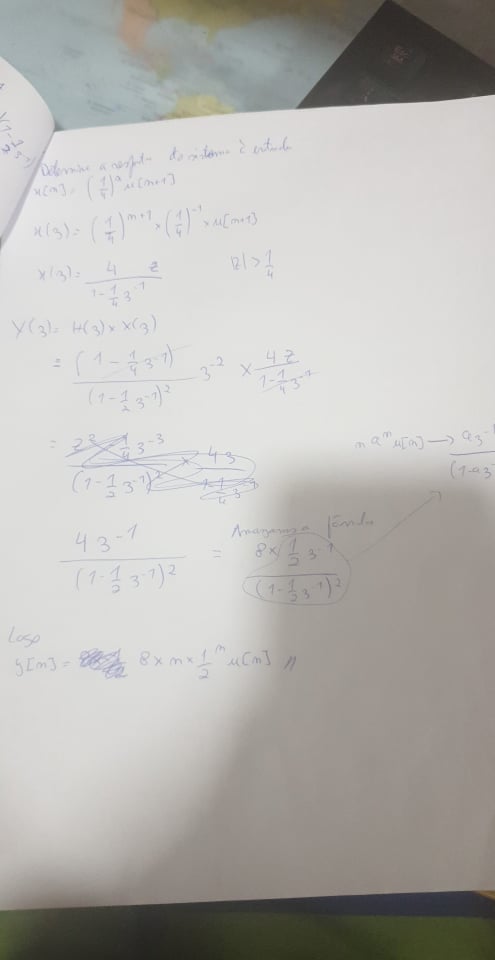 Determine a resposta do sistema à entrada
x[n] = (1/4)^n u[n+1]
x(z) = (1/4)^{n+1} × (1/4)^{-1} × u[n+1]
x(z) = 4 z / (1 - 1/4 z^{-1}) |z| > 1/4
Y(z) = H(z) × X(z)
= (1 - 1/4 z^{-1}) / (1 - 1/2 z^{-1})^2 z^{-2} × 4 z / (1 - 1/4 z^{-1})
n a^n u[n] → a z^{-1} / (1 - a z
4 z^{-1} / (1 - 1/2 z^{-1})^2 = 8 × 1/2 z^{-1} / (1 - 1/2 z^{-1})^2
Logo
y[n] = 8 × n × 1/2^n u[n] //